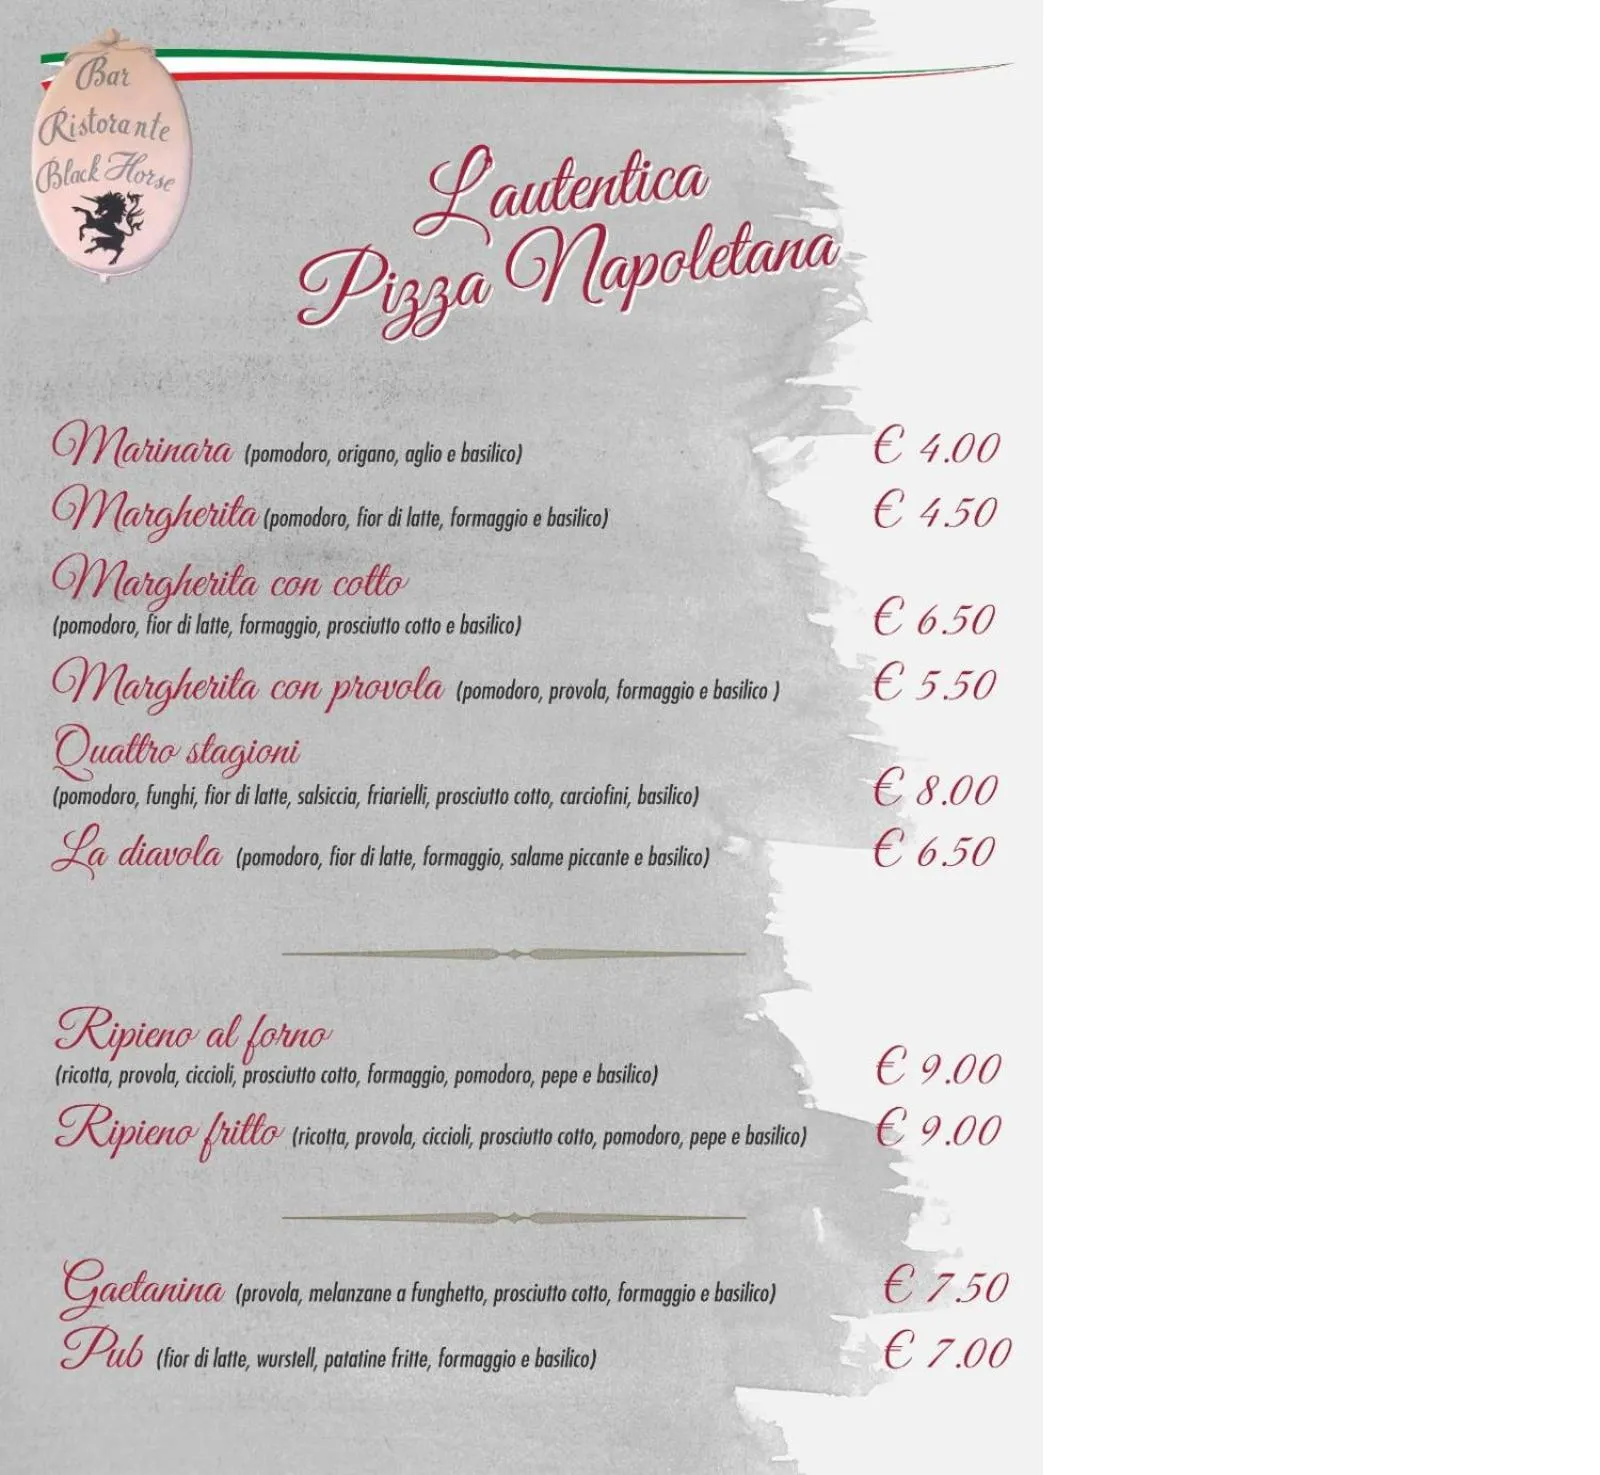 Bar
Ristorante
Black Horse
L'autentica
Pizza Napoletana
Marinara (pomodoro, origano, aglio e basilico) € 4.00
Margherita (pomodoro, fior di latte, formaggio e basilico) € 4.50
Margherita con cotto
(pomodoro, fior di latte, formaggio, prosciutto cotto e basilico) € 6.50
Margherita con provola (pomodoro, provola, formaggio e basilico ) € 5.50
Quattro stagioni
(pomodoro, funghi, fior di latte, salsiccia, friarielli, prosciutto cotto, carciofini, basilico) € 8.00
La diavola (pomodoro, fior di latte, formaggio, salame piccante e basilico) € 6.50
Ripieno al forno
(ricotta, provola, ciccioli, prosciutto cotto, formaggio, pomodoro, pepe e basilico) € 9.00
Ripieno fritto (ricotta, provola, ciccioli, prosciutto cotto, pomodoro, pepe e basilico) € 9.00
Gaetanina (provola, melanzane a funghetto, prosciutto cotto, formaggio e basilico) € 7.50
Pub (fior di latte, wurstell, patatine fritte, formaggio e basilico) € 7.00